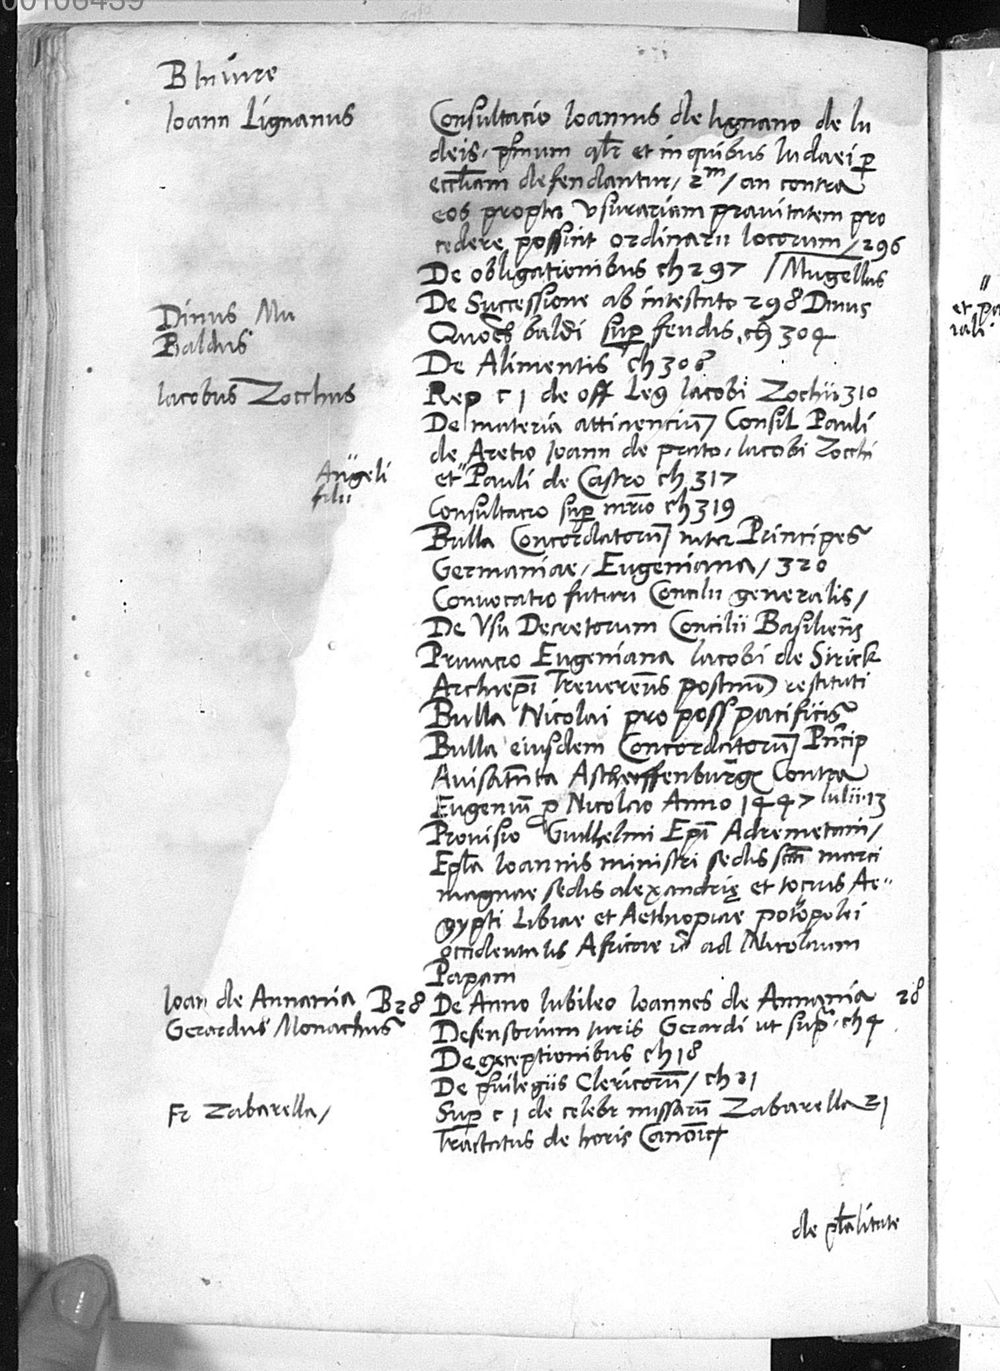 00108439
B In iure
Ioann Lignanus Consultatio Ioannis de lignano de Iu
deis, pͥmum qlr et in quibus Iudaei p
eccl̄iam defendantur, 2m, an contra
eos propter Vsurariam prauitatem pro
cedere possint ordinarii locorum, 296
De obligationibus ch 297 / Mugellus
De Successione ab intestato 298 Dinus
Dinus Mu
Baldus Quōes baldi sup feudis, ch 304
De Alimentis ch 308
Iacobus Zocchus Rep c 1 de off Leg Iacobi Zochii 310
De materia attinenciuȝ Consil Pauli
de Aretio Ioann de prato, Iacobi Zocchi
Angeli filii et Pauli de Castro ch 317
Consultacio sup mr̄io ch 319
Bulla Concordatoruȝ inter Principes
Germaniae, Eugeniana, 320
Conuocatio futuri Concilii generalis,
De Vsu Decretorum Concilii Basilien̄s
Priuacio Eugeniana Iacobi de Sirick
Archiepī Treueren̄s postmō restituti
Bulla Nicolai pro poss pacificis
Bulla eiusdem Concordatoruȝ Prīcip
Auisam̄ta Aschaffenburg Contra
Eugeniū p Nicolao Anno 1447 Iulii 13
Prouisio Guilhelmi Epī Adremetani,
Epl̄a Ioannis ministri sedis scī marci
magnae sedis alexandrię et tocius Ae-
gypti Libiae et Aethiopiae
occidentalis Africae ad Nicolaum
Papam
Ioan de Annania B 28 De Anno Iubileo Ioannes de Annania 28
Gerardus Monachus Defensorium Iuris Gerardi ut sup, ch 4
De exceptionibus ch 18
De pͥuilegiis Clericorū, ch 21
Fr Zabarella, Sup c 1 de celebr missarū Zabarella 21
Tractatus de horis Canōic
de pl̄alitate
et pa
iali